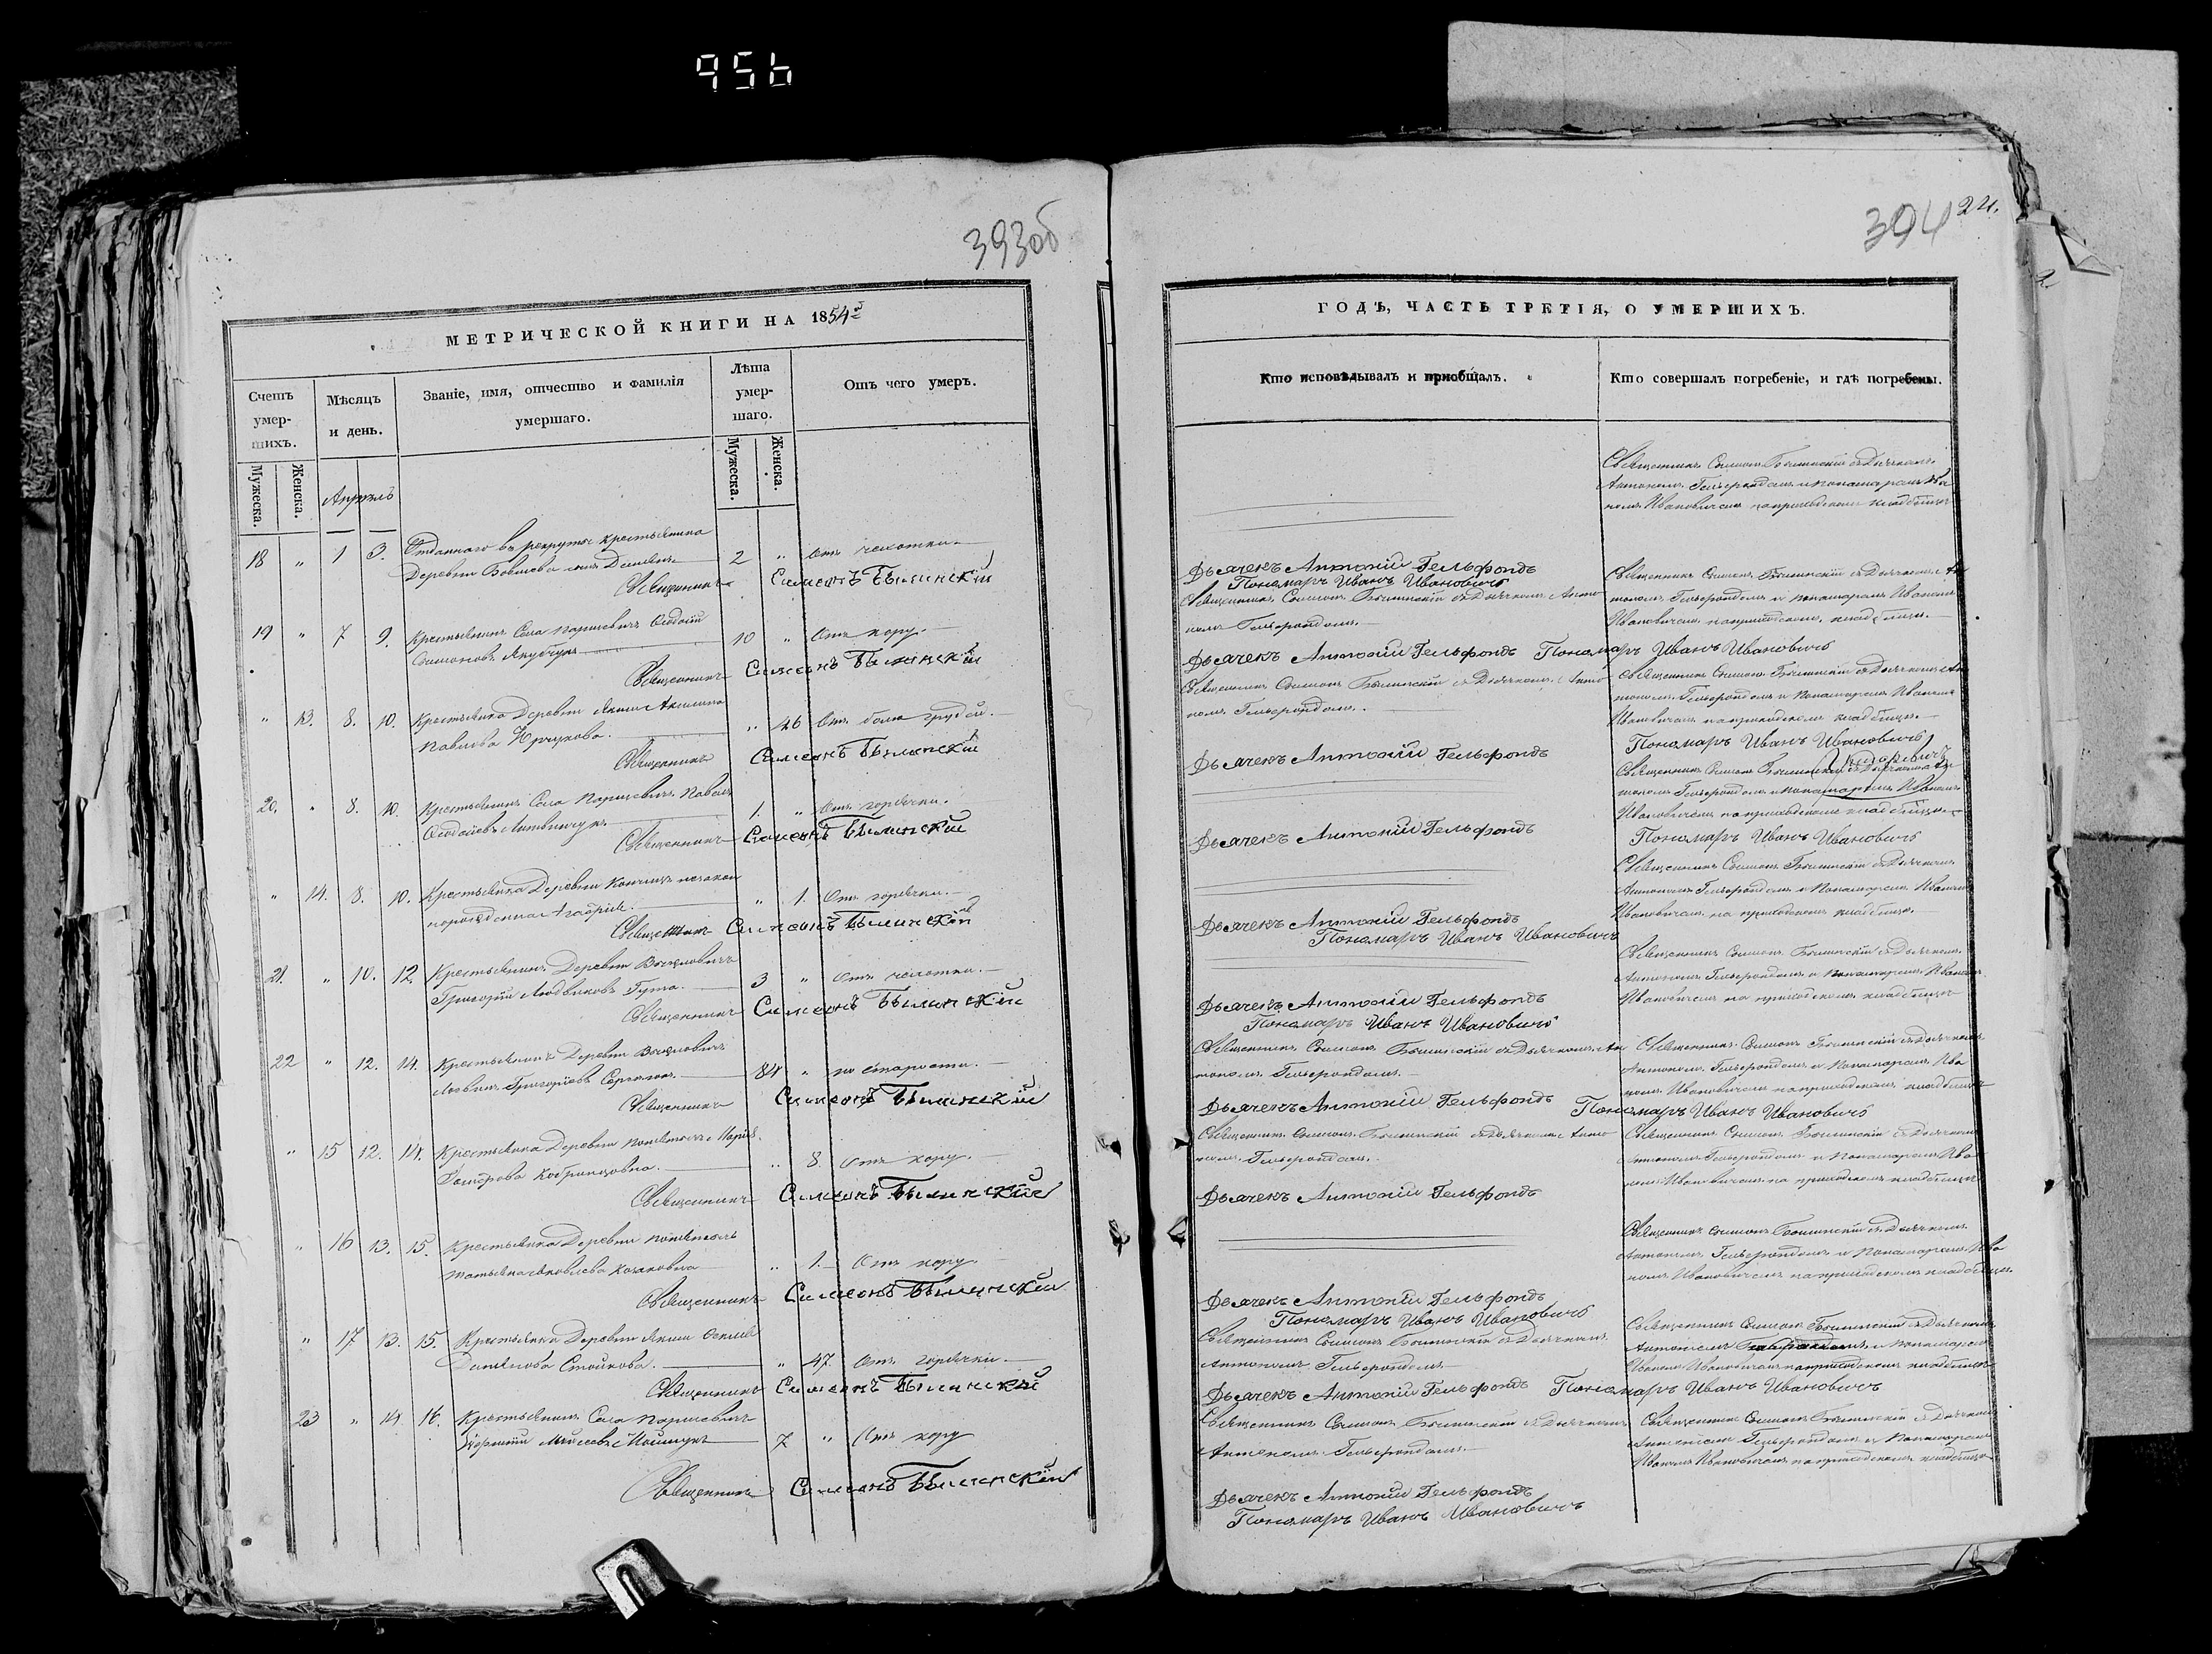 956
393об
МЕТРИЧЕСКОЙ КНИГИ НА 1854й
Счетъ умер-шихъ.
Мѣсяцъ и день.
Званіе, имя, отчество и фамилія умершаго.
Лѣта умер-шаго.
Отъ чего умеръ.
Мужеска.
Женска.
Мужеска.
Женска.
Апрѣль
18 " 1 3. Отданнаго въ рекруты крестьянина
Деревни сынъ 2 " Отъ чахотки.
Священникъ Симеонъ Былинскій
19 " 7 9. Крестьянинъ Села Паршевичъ Феодосій
Симоновъ Якубчукъ 10 " Отъ кору.
Священникъ Симеонъ Былинскій
" 13. 8. 10. Крестьянка Деревни Акилина
Павлова " 46 Отъ боли грудей.
Священникъ Симеонъ Былинскій
20. " 8. 10. Крестьянинъ Села Паршевичъ Павелъ
Феодосіевъ Литвинчукъ 1. " Отъ горячки.
Священникъ Симеонъ Былинскій
" 14. 8. 10. Крестьянка Деревни незакон
норожденна " 1. Отъ горячки.
Священникъ Симеонъ Былинскій
21. " 10. 12. Крестьянинъ Деревни
Григорій 3 " Отъ чахотки.
Священникъ Симеонъ Былинскій
22 " 12. 14. Крестьянинъ Деревни
Григоріевъ 84 " по старости.
Священникъ Симеонъ Былинскій
" 15 12. 14. Крестьянка Деревни Марія
" 8. Отъ кору.
Священникъ Симеонъ Былинскій
" 16 13. 15. Крестьянка Деревни
Татьяна Яковлева " 1. Отъ кору.
Священникъ Симеонъ Былинскій
" 17 13. 15. Крестьянка Деревни
" 47. Отъ горячки
Священникъ Симеонъ Былинскій
23 " 14 16. Крестьянинъ Села Паршевичъ
7 " Отъ кору
Священникъ Симеонъ Былинскій
394
24.
ГОДЪ, ЧАСТЬ ТРЕТІЯ, О УМЕРШИХЪ.
Кто исповѣдывалъ и приобщалъ.
Кто совершалъ погребеніе, и гдѣ погребены.
Священникъ Симеонъ Былинскій съ Дьячкомъ
Антоніемъ Гельфондомъ и Пономаремъ Ива
номъ Ивановичемъ на приходскомъ кладбищѣ
Дьячекъ Антоній Гельфондъ
Пономарь Иванъ Ивановичъ
Священникъ Симеонъ Былинскій съ Дьячкомъ Анто
ніемъ Гельфондомъ
Священникъ Симеонъ Былинскій съ Дьячкомъ Ан
тоніемъ Гельфондомъ и Пономаремъ Иваномъ
Ивановичемъ на приходскомъ кладбищѣ.
Дьячекъ Антоній Гельфондъ Пономарь Иванъ Ивановичъ
Священникъ Симеонъ Былинскій съ Дьячкомъ Анто
ніемъ Гельфондомъ.
Священникъ Симеонъ Былинскій съ Дьячкомъ Ан
тоніемъ Гельфондомъ и Пономаремъ Иваномъ
Ивановичемъ на приходскомъ кладбищѣ.
Дьячекъ Антоній Гельфондъ
Пономарь Иванъ Ивановичъ
Священникъ Симеонъ Былинскій съ Дьячкомъ Ан
тоніемъ Гельфондомъ и Пономаремъ Иваномъ
Ивановичемъ на приходскомъ кладбищѣ.
Дьячекъ Антоній Гельфондъ
Пономарь Иванъ Ивановичъ
Священникъ Симеонъ Былинскій съ Дьячкомъ
Антоніемъ Гельфондомъ и Пономаремъ Иваномъ
Ивановичемъ на приходскомъ кладбищѣ.
Дьячекъ Антоній Гельфондъ
Пономарь Иванъ Ивановичъ
Священникъ Симеонъ Былинскій съ Дьячкомъ
Антоніемъ Гельфондомъ и Пономаремъ Иваномъ
Ивановичемъ на приходскомъ кладбищѣ
Дьячекъ Антоній Гельфондъ
Пономарь Иванъ Ивановичъ
Священникъ Симеонъ Былинскій съ Дьячкомъ Ан
тоніемъ Гельфондомъ.
Священникъ Симеонъ Былинскій съ Дьячкомъ
Антоніемъ Гельфондомъ и Пономаремъ Ива
номъ Ивановичемъ на приходскомъ кладбищѣ
Дьячекъ Антоній Гельфондъ Пономарь Иванъ Ивановичъ
Священникъ Симеонъ Былинскій съ Дьячкомъ Анто
ніемъ Гельфондомъ.
Священникъ Симеонъ Былинскій съ Дьячкомъ
Антоніемъ Гельфондомъ и Пономаремъ Ива
номъ Ивановичемъ на приходскомъ кладбищѣ
Дьячекъ Антоній Гельфондъ
Священникъ Симеонъ Былинскій съ Дьячкомъ
Антоніемъ Гельфондомъ и Пономаремъ Ива
номъ Ивановичемъ на приходскомъ кладбищѣ.
Дьячекъ Антоній Гельфондъ
Пономарь Иванъ Ивановичъ
Священникъ Симеонъ Былинскій съ Дьячкомъ
Антоніемъ Гельфондомъ
Священникъ Симеонъ Былинскій съ Дьячкомъ
Антоніемъ Гельфондомъ и Пономаремъ
Иваномъ Ивановичемъ на приходскомъ кладбищѣ
Дьячекъ Антоній Гельфондъ Пономарь Иванъ Ивановичъ
Священникъ Симеонъ Былинскій съ Дьячкомъ
Антоніемъ Гельфондомъ
Священникъ Симеонъ Былинскій съ Дьячкомъ
Антоніемъ Гельфондомъ и Пономаремъ
Иваномъ Ивановичемъ на приходскомъ кладбищѣ
Дьячекъ Антоній Гельфондъ
Пономарь Иванъ Ивановичъ